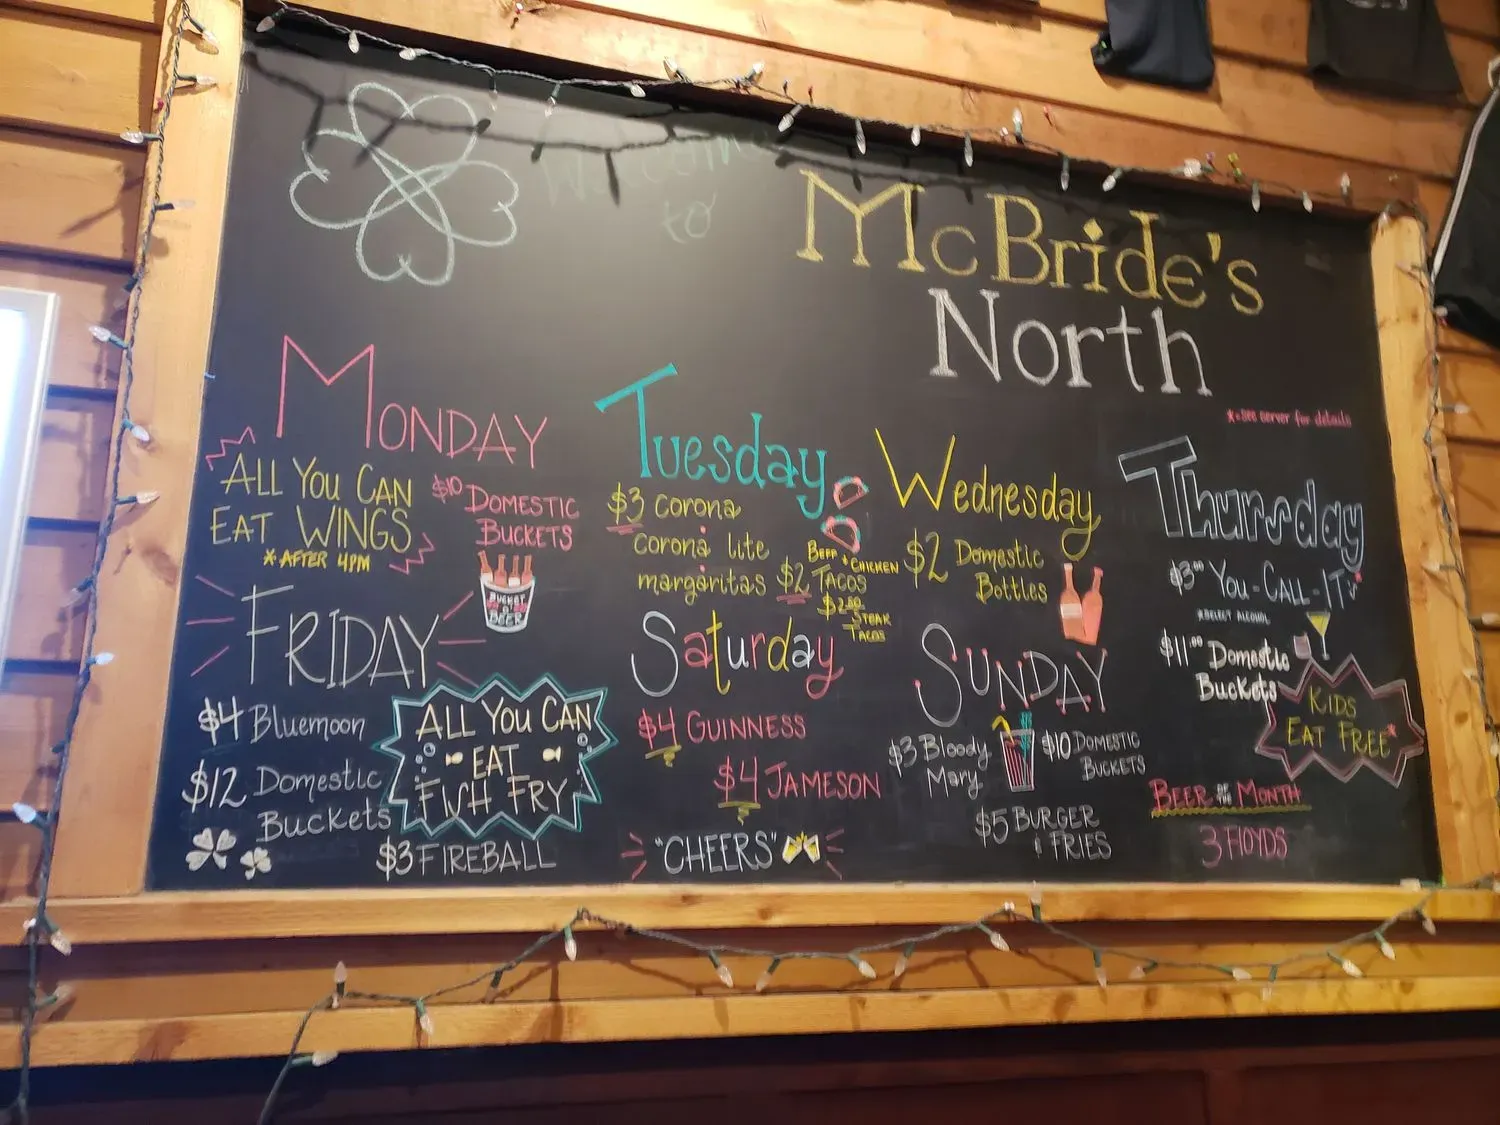 Welcome
to
McBride's
North
*=see server for details
MONDAY
ALL YOU CAN
EAT WINGS
*AFTER 4PM
$10 DOMESTIC
BUCKETS
BUCKET
O'
BEER
Tuesday
$3 corona
corona lite
margaritas
BEEF + CHICKEN
$2 TACOS
$2.50
STEAK
TACOS
Wednesday
$2 Domestic
Bottles
Thursday
$3.00 YOU-CALL-IT'S
*SELECT ALCOHOL
$11.00 Domestic
Buckets
KIDS
EAT FREE*
BEER OF THE MONTH
3 FLOYDS
FRIDAY
$4 Bluemoon
$12 Domestic
Buckets
ALL YOU CAN
EAT
FISH FRY
$3 FIREBALL
Saturday
$4 GUINNESS
$4 JAMESON
"CHEERS"
SUNDAY
$3 Bloody
Mary
$10 DOMESTIC
BUCKETS
$5 BURGER
& FRIES